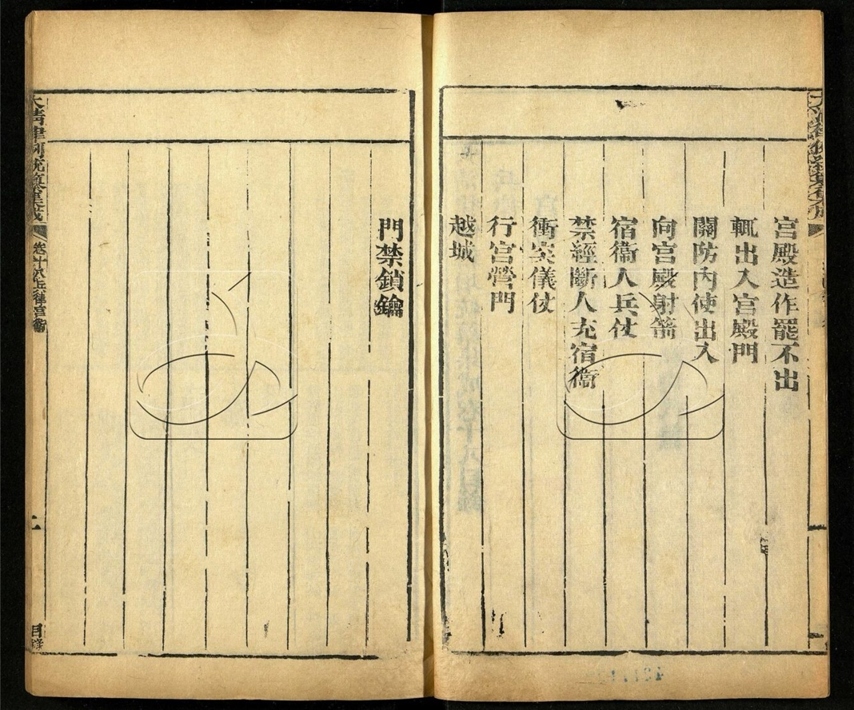 宮殿造作罷不出
輒出入宮殿門
關防內使出入
向宮殿射箭
宿衞人兵仗
禁經斷人充宿衞
衝突儀仗
行宮營門
越城
門禁鎖鑰
大清律例統纂集成
卷十八兵律宮衞
二
目錄